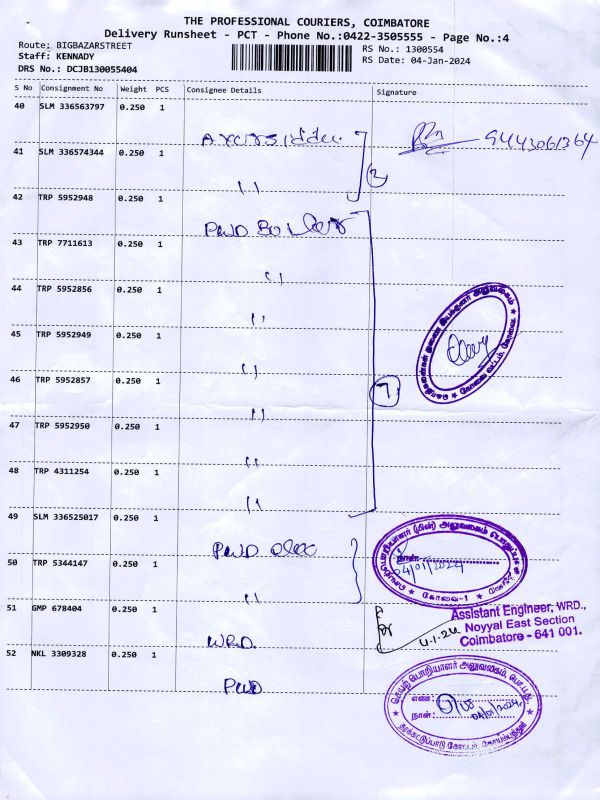 THE PROFESSIONAL COURIERS, COIMBATORE
Delivery Runsheet - PCT - Phone No.:0422-3505555 - Page No.:4
Route: BIGBAZARSTREET RS No.: 1300554
Staff: KENNADY RS Date: 04-Jan-2024
DRS No.: DCJB130055404
S No Consignment No Weight PCS Consignee Details Signature
40 SLM 336563797 0.250 1
9443061364
41 SLM 336574344 0.250 1
" 2
42 TRP 5952948 0.250 1
PWD
43 TRP 7711613 0.250 1
"
44 TRP 5952856 0.250 1
"
45 TRP 5952949 0.250 1
"
46 TRP 5952857 0.250 1
" 7
47 TRP 5952950 0.250 1
"
48 TRP 4311254 0.250 1
"
49 SLM 336525017 0.250 1
PWD
50 TRP 5344147 0.250 1
நாள்: 04/01/2024
"
கோவை-1
51 GMP 678404 0.250 1
Assistant Engineer, WRD.,
Noyyal East Section
4.1.24 Coimbatore - 641 001.
WRD.
52 NKL 3309328 0.250 1
PWD
செயற்பொறியாளர் அலுவலகம்,
எண்:
நாள்: 04/01/2024